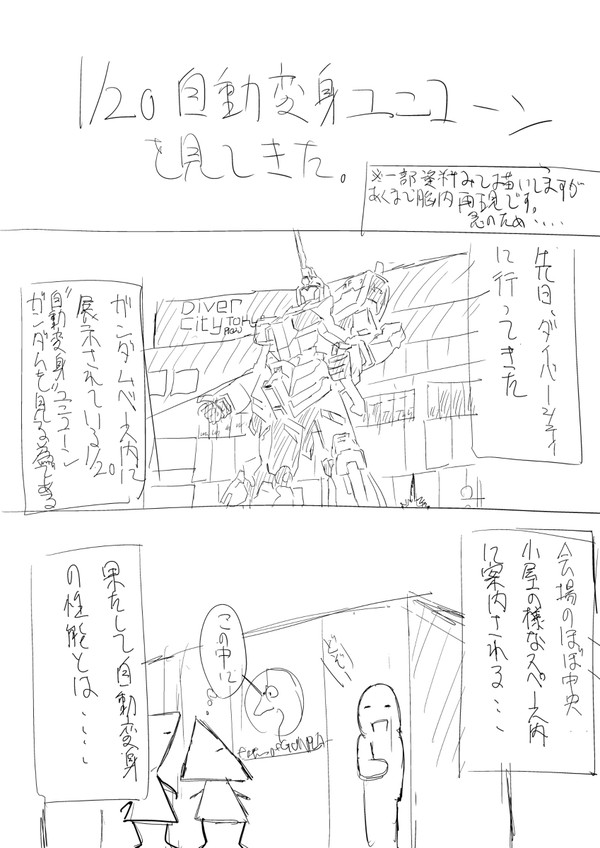 1/20 自動変身ユニコーン
を見てきた。
※一部資料みて描いてますが
あくまで脳内再現です。
念のため・・・・
先日、ダイバーシティ
に行ってきた
Diver
City Tokyo
ガンダムベース内に
展示されている1/20
"自動変身"ユニコーン
ガンダムを見る為である
会場のほぼ中央
小屋の様なスペース内
に案内される・・・
どぞー
この中に
GUNPLA
果たして自動変身
の性能とは・・・・